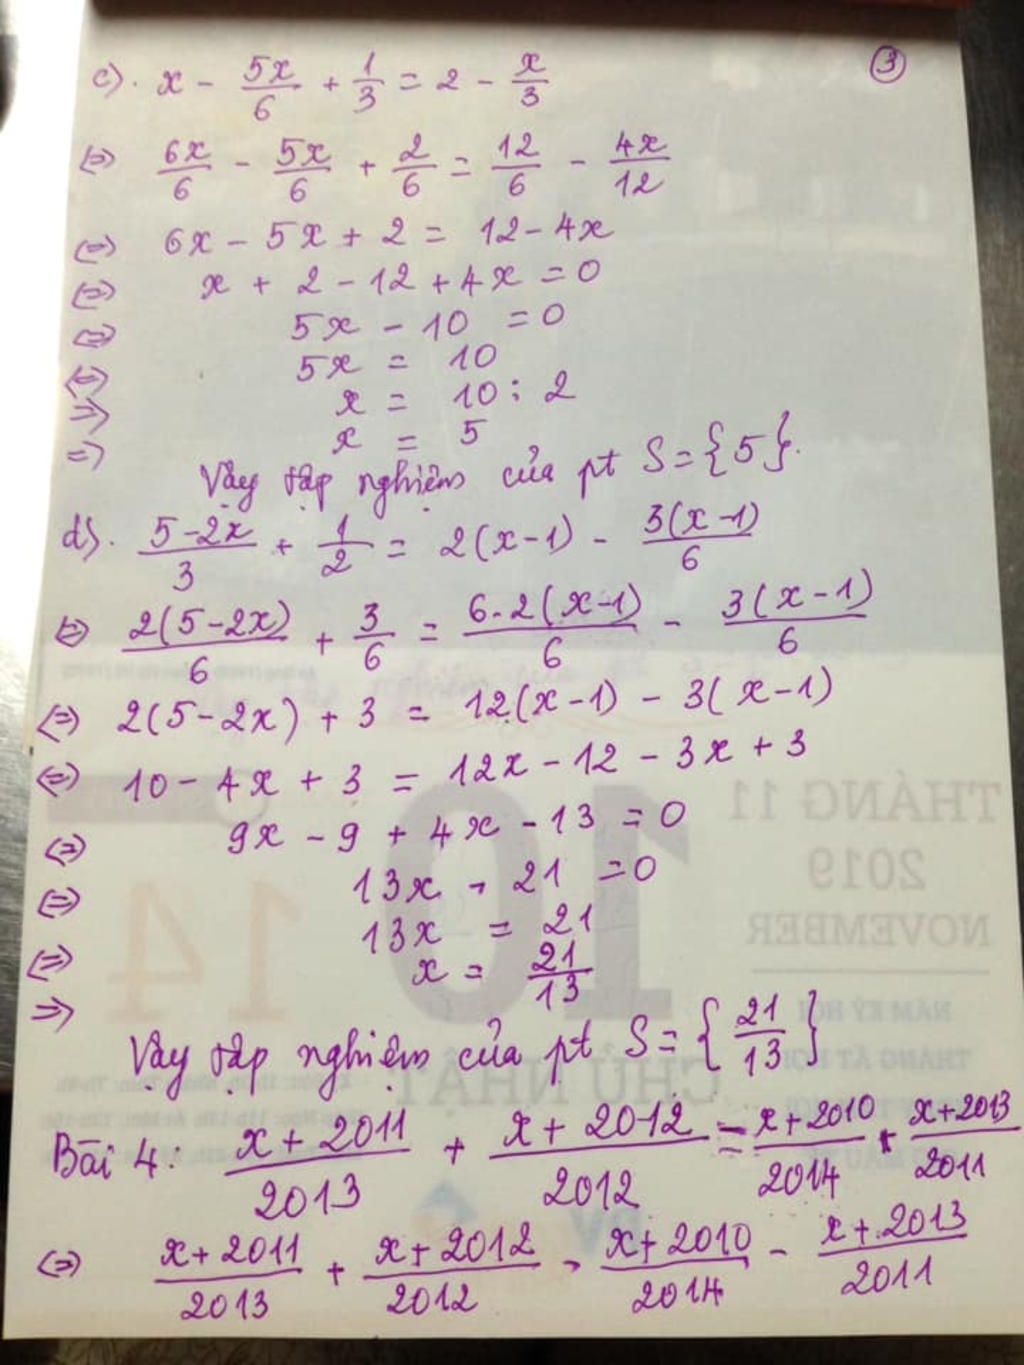 c). x - 5x/6 + 1/3 = 2 - x/3
③
⇔ 6x/6 - 5x/6 + 2/6 = 12/6 - 4x/12
⇔ 6x - 5x + 2 = 12 - 4x
⇔ x + 2 - 12 + 4x = 0
⇔ 5x - 10 = 0
⇔ 5x = 10
⇒ x = 10 : 2
⇒ x = 5
Vậy tập nghiệm của pt S = {5}.
d). (5-2x)/3 + 1/2 = 2(x-1) - 3(x-1)/6
⇔ 2(5-2x)/6 + 3/6 = 6.2(x-1)/6 - 3(x-1)/6
⇔ 2(5-2x) + 3 = 12(x-1) - 3(x-1)
⇔ 10 - 4x + 3 = 12x - 12 - 3x + 3
⇔ 9x - 9 + 4x - 13 = 0
⇔ 13x - 21 = 0
⇔ 13x = 21
⇒ x = 21/13
Vậy tập nghiệm của pt S = {21/13}
Bài 4: (x+2011)/2013 + (x+2012)/2012 = (x+2010)/2014 + (x+2013)/2011
⇔ (x+2011)/2013 + (x+2012)/2012 - (x+2010)/2014 - (x+2013)/2011
THÁNG 11
2019
NOVEMBER
10
14
CHỦ NHẬT